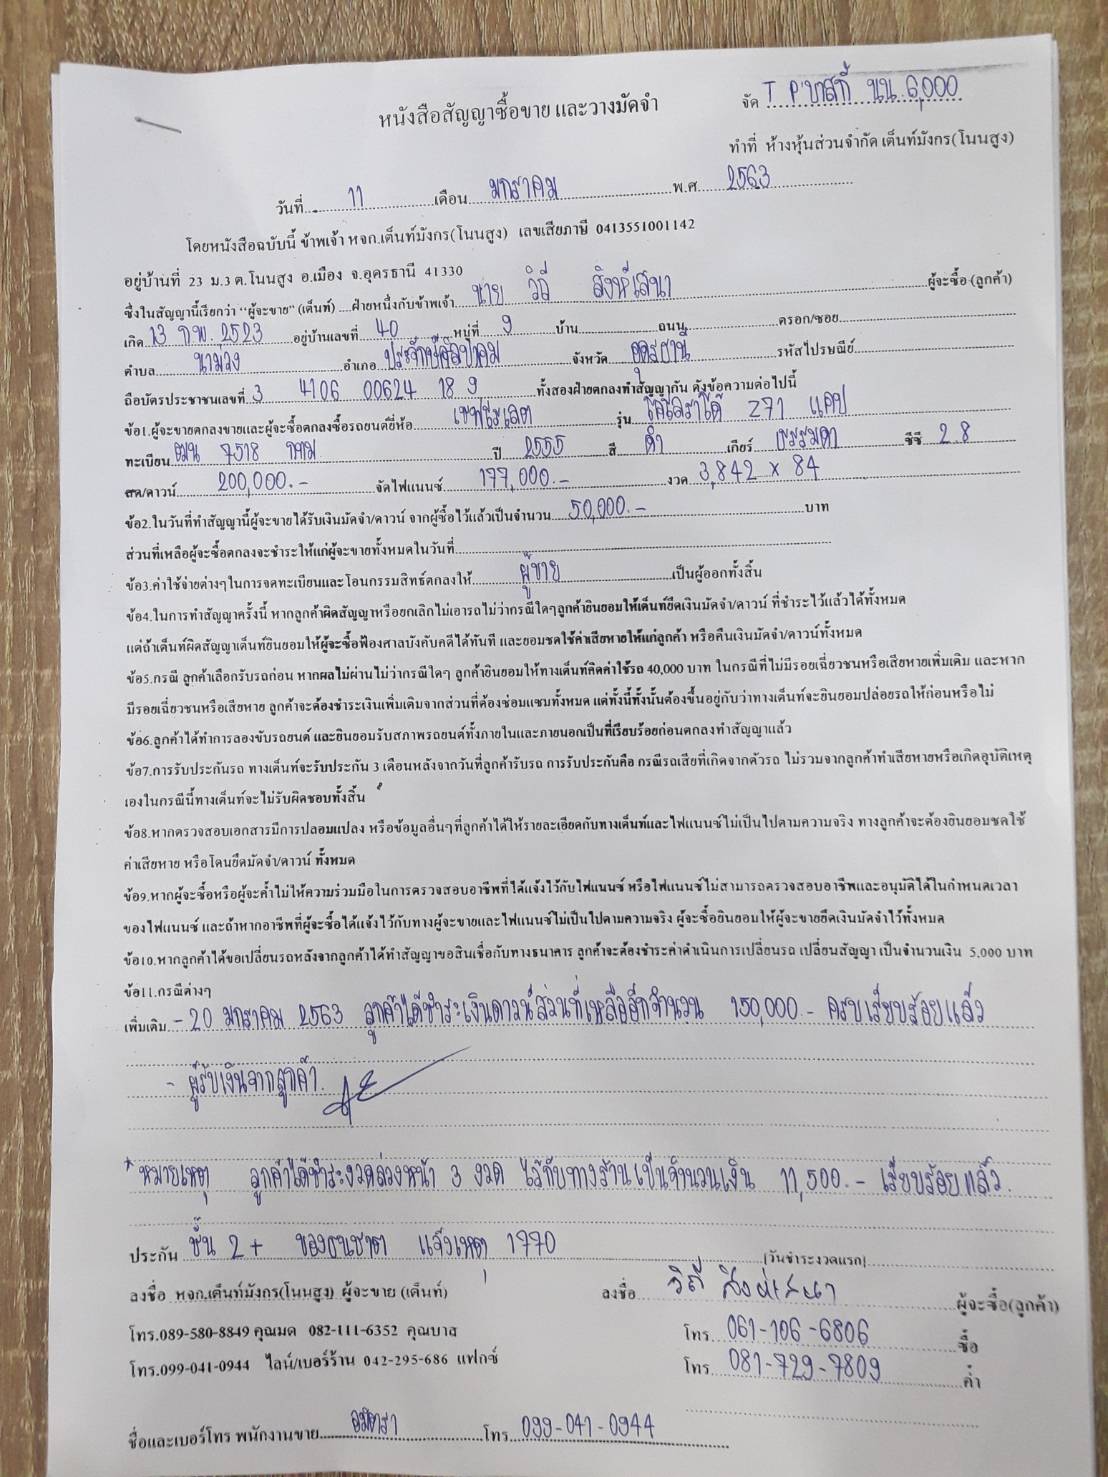 หนังสือสัญญาซื้อขาย และวางมัดจำ
จัด T P บาสกี้ นน 6,000
ทำที่ ห้างหุ้นส่วนจำกัด เต็นท์มังกร(โนนสูง)
วันที่ 11 เดือน มกราคม พ.ศ. 2563
โดยหนังสือฉบับนี้ ข้าพเจ้า หจก.เต็นท์มังกร(โนนสูง) เลขเสียภาษี 0413551001142
อยู่บ้านที่ 23 ม.3 ต.โนนสูง อ.เมือง จ.อุดรธานี 41330
ซึ่งในสัญญานี้เรียกว่า "ผู้จะขาย" (เต็นท์) ....ฝ่ายหนึ่งกับข้าพเจ้า นาย วิถี สิงห์เสนา ผู้จะซื้อ (ลูกค้า)
เกิด 13 ก.พ. 2523 อยู่บ้านเลขที่ 40 หมู่ที่ 9 บ้าน ถนน ตรอก/ซอย
ตำบล นาม่วง อำเภอ ประจักษ์ศิลปาคม จังหวัด อุดรธานี รหัสไปรษณีย์
ถือบัตรประชาชนเลขที่ 3 4106 00624 18 9 ทั้งสองฝ่ายตกลงทำสัญญากัน ดังข้อความต่อไปนี้
ข้อ1.ผู้จะขายตกลงขายและผู้จะซื้อตกลงซื้อรถยนต์ยี่ห้อ เชฟโรเลต รุ่น โคโลราโด้ Z71 แคป
ทะเบียน ฒน 7518 กทม ปี 2555 สี ดำ เกียร์ ธรรมดา ซีซี 2.8
สด/ดาวน์ 200,000.- จัดไฟแนนซ์ 177,000.- งวด 3,842 x 84
ข้อ2.ในวันที่ทำสัญญานี้ผู้จะขายได้รับเงินมัดจำ/ดาวน์ จากผู้ซื้อไว้แล้วเป็นจำนวน 50,000.- บาท
ส่วนที่เหลือผู้จะซื้อตกลงจะชำระให้แก่ผู้จะขายทั้งหมดในวันที่
ข้อ3.ค่าใช้จ่ายต่างๆในการจดทะเบียนและโอนกรรมสิทธ์ตกลงให้ ผู้ขาย เป็นผู้ออกทั้งสิ้น
ข้อ4.ในการทำสัญญาครั้งนี้ หากลูกค้าผิดสัญญาหรือยกเลิกไม่เอารถไม่ว่ากรณีใดๆลูกค้ายินยอมให้เต็นท์ยึดเงินมัดจำ/ดาวน์ ที่ชำระไว้แล้วได้ทั้งหมด
แต่ถ้าเต็นท์ผิดสัญญาเต็นท์ยินยอมให้ผู้จะซื้อฟ้องศาลบังคับคดีได้ทันที และยอมชดใช้ค่าเสียหายให้แก่ลูกค้า หรือคืนเงินมัดจำ/ดาวน์ทั้งหมด
ข้อ5.กรณี ลูกค้าเลือกรับรถก่อน หากผลไม่ผ่านไม่ว่ากรณีใดๆ ลูกค้ายินยอมให้ทางเต็นท์คิดค่าใช้รถ 40,000 บาท ในกรณีที่ไม่มีรอยเฉี่ยวชนหรือเสียหายเพิ่มเติม และหาก
มีรอยเฉี่ยวชนหรือเสียหาย ลูกค้าจะต้องชำระเงินเพิ่มเติมจากส่วนที่ต้องซ่อมแซมทั้งหมด แต่ทั้งนี้ทั้งนั้นต้องขึ้นอยู่กับว่าทางเต็นท์จะยินยอมปล่อยรถให้ก่อนหรือไม่
ข้อ6.ลูกค้าได้ทำการลองขับรถยนต์ และยินยอมรับสภาพรถยนต์ทั้งภายในและภายนอกเป็นที่เรียบร้อยก่อนตกลงทำสัญญาแล้ว
ข้อ7.การรับประกันรถ ทางเต็นท์จะรับประกัน 3 เดือนหลังจากวันที่ลูกค้ารับรถ การรับประกันคือ กรณีรถเสียที่เกิดจากตัวรถ ไม่รวมจากลูกค้าทำเสียหายหรือเกิดอุบัติเหตุ
เองในกรณีนี้ทางเต็นท์จะไม่รับผิดชอบทั้งสิ้น
ข้อ8.หากตรวจสอบเอกสารมีการปลอมแปลง หรือข้อมูลอื่นๆที่ลูกค้าได้ให้รายละเอียดกับทางเต็นท์และไฟแนนซ์ไม่เป็นไปตามความจริง ทางลูกค้าจะต้องยินยอมชดใช้
ค่าเสียหาย หรือโดนยึดมัดจำ/ดาวน์ ทั้งหมด
ข้อ9.หากผู้จะซื้อหรือผู้จะค้ำไม่ให้ความร่วมมือในการตรวจสอบอาชีพที่ได้แจ้งไว้กับไฟแนนซ์ หรือไฟแนนซ์ไม่สามารถตรวจสอบอาชีพและอนุมัติได้ในกำหนดเวลา
ของไฟแนนซ์ และถ้าหากอาชีพที่ผู้จะซื้อได้แจ้งไว้กับทางผู้จะขายและไฟแนนซ์ไม่เป็นไปตามความจริง ผู้จะซื้อยินยอมให้ผู้จะขายยึดเงินมัดจำไว้ทั้งหมด
ข้อ10.หากลูกค้าได้ขอเปลี่ยนรถหลังจากลูกค้าได้ทำสัญญาขอสินเชื่อกับทางธนาคาร ลูกค้าจะต้องชำระค่าดำเนินการเปลี่ยนรถ เปลี่ยนสัญญา เป็นจำนวนเงิน 5,000 บาท
ข้อ11.กรณีต่างๆ
เพิ่มเติม - 20 มกราคม 2563 ลูกค้าได้ชำระเงินดาวน์ส่วนที่เหลืออีกจำนวน 150,000.- ครบเรียบร้อยแล้ว
- ผู้รับเงินจากลูกค้า.
* หมายเหตุ ลูกค้าได้ชำระงวดล่วงหน้า 3 งวด ไว้กับทางร้านเป็นจำนวนเงิน 11,500.- เรียบร้อยแล้ว.
ประกัน ชั้น 2+ ของธนชาต แจ้งเหตุ 1770 (วันชำระงวดแรก)
ลงชื่อ หจก.เต็นท์มังกร(โนนสูง) ผู้จะขาย (เต็นท์) ลงชื่อ วิถี สิงห์เสนา ผู้จะซื้อ(ลูกค้า)
โทร.089-580-8849 คุณมด 082-111-6352 คุณบาส โทร 061-106-6806 ซื้อ
โทร.099-041-0944 ไลน์/เบอร์ร้าน 042-295-686 แฟกซ์ โทร 081-729-7809 ค้ำ
ชื่อและเบอร์โทร พนักงานขาย โทร 099-041-0944